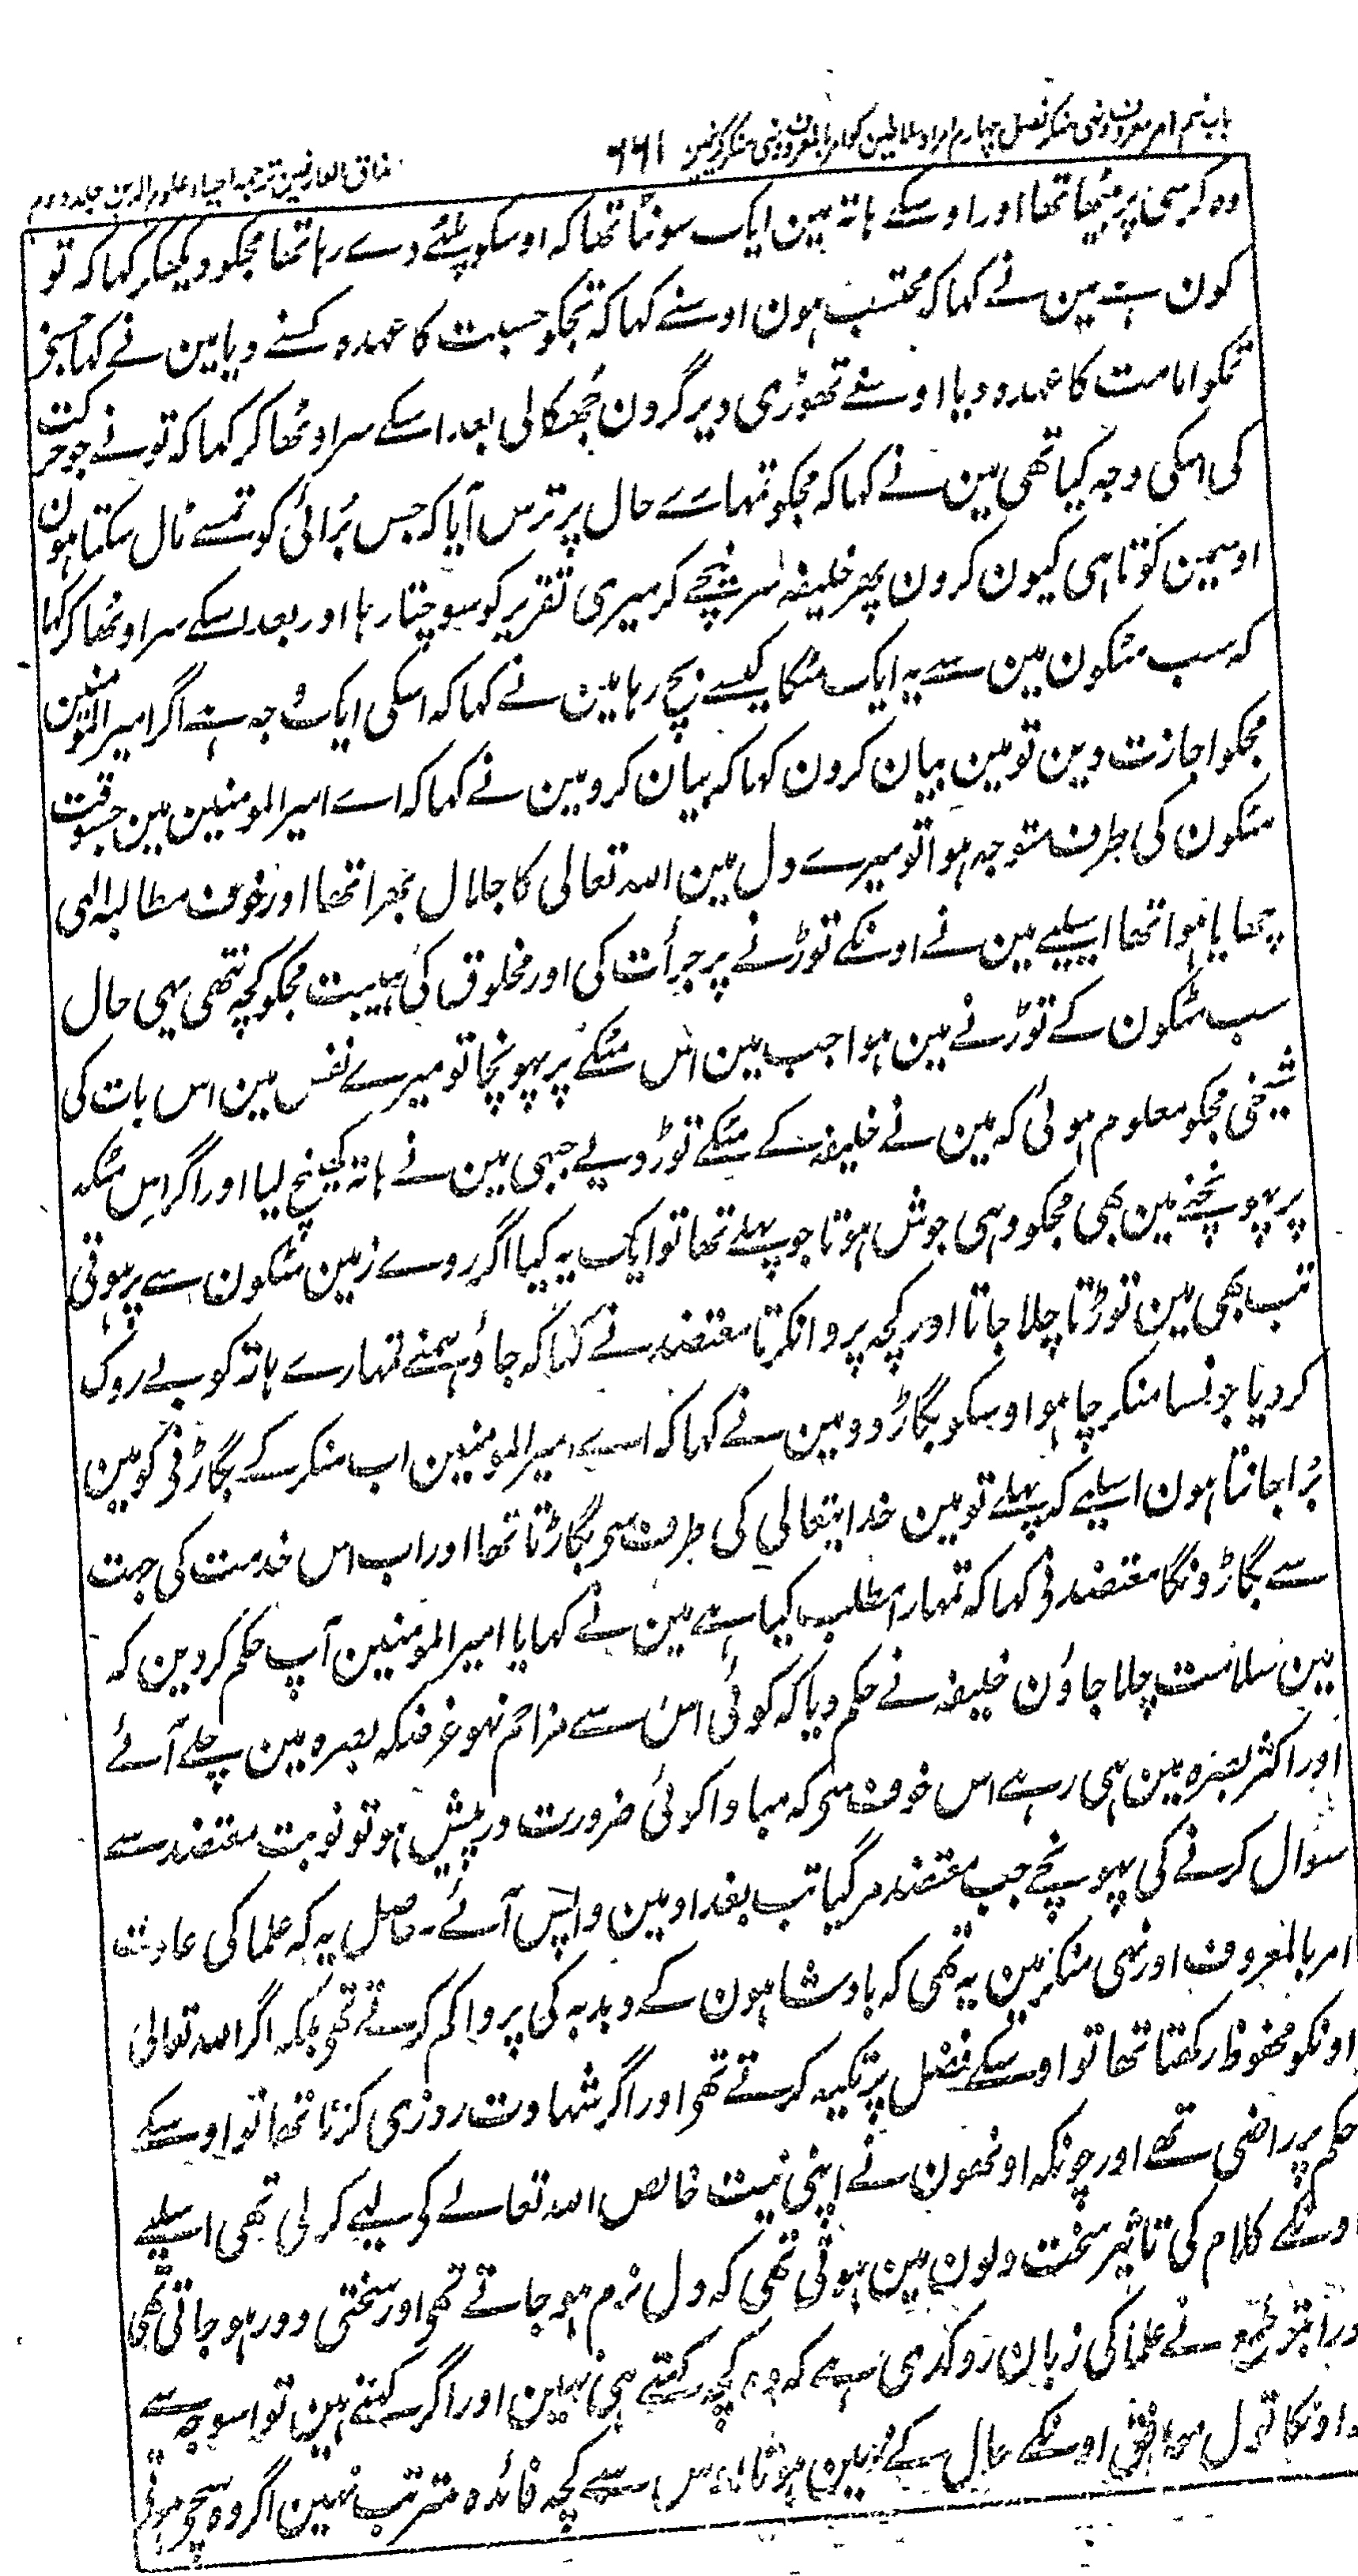 باب نہم امر معروف ونہی منکر فصل چہارم امرا وسلاطین کو امر بالمعروف ونہی منکر کرنیمین ۶۶۱ مذاق العارفین ترجمہ احیاء علوم الدین جلد دوم
وہ کرسی پر بیٹھا تھا اور اوسکے ہاتہ مین ایک سونٹا تھا کہ اوسکو پلٹے دے رہا تھا مجکو دیکھکر کہا کہ تو
کون ہے مین نے کہا کہ محتسب ہون اوسنے کہا کہ تجکو حسبت کا عہدہ کسنے دیا مین نے کہا جسنے
تمکو امامت کا عہدہ دیا اوسنے تھوڑی دیر گردن جھکا لی بعد اسکے سر اوٹھا کر کہا کہ تو نے جو حرکت
کی اسکی وجہ کیا تھی مین نے کہا کہ مجکو تمہارے حال پر ترس آیا کہ جس برائی کو تمسے ٹال سکتا ہون
اوسمین کوتاہی کیون کرون پھر خلیفہ سر نیچے کر میری تقریر کو سوچتا رہا اور بعد اسکے سر اوٹھا کر کہا
کہ سب مٹکون مین سے یہ ایک مٹکا کیسے بچ رہا مین نے کہا کہ اسکی ایک وجہ ہے اگر امیر المومنین
مجکو اجازت دین تو مین بیان کرون کہا کہ بیان کرو مین نے کہا کہ اے امیر المومنین مین جسوقت
مٹکون کی طرف متوجہ ہوا تو میرے دل مین اللہ تعالی کا جلال بھرا تھا اور خوف مطالبہ الہی
چھایا ہوا تھا اسلیے مین نے اونکے توڑنے پر جرأت کی اور مخلوق کی ہیبت مجکو کچہ نتھی یہی حال
سب مٹکون کے توڑنے مین ہوا جب مین اس مٹکے پر پہونچا تو میرے نفس مین اس بات کی
شیخی مجکو معلوم ہوئی کہ مین نے خلیفہ کے مٹکے توڑدیے جبھی مین نے ہاتہ کھینچ لیا اور اگر اس مٹکہ
پر پہونچنے مین بھی مجکو وہی جوش ہوتا جو پہلے تھا تو ایک یہ کیا اگر روے زمین مٹکون سے پر ہوتی
تب بھی مین توڑتا چلا جاتا اور کچہ پروا نکرتا معتضد نے کہا کہ جاؤ ہمنے تمہارے ہاتہ کو بے روک
کردیا جونسا منکر چاہو اوسکو بگاڑ دو مین نے کہا کہ اے امیر المومنین اب منکر کے بگاڑنی کو مین
برا جانتا ہون اسلیے کہ پہلے تو مین خدایتعالی کی طرف سی بگاڑتا تھا اور اب اس خدمت کی جہت
سے بگاڑونگا معتضد نی کہا کہ تمہارا مطلب کیا ہے مین نے کہا یا امیر المومنین آپ حکم کردین کہ
مین سلامت چلا جاؤن خلیفہ نے حکم دیا کہ کوئی اس سے مزاحم نہو غرضکہ بصرہ مین چلے آئے
اور اکثر بصرہ مین ہی رہے اس خوف سی کہ مبادا کوئی ضرورت درپیش ہو تو نوبت معتضد سے
سوال کرنے کی پہونچے جب معتضد مرگیا تب بغداد مین واپس آئے۔ حاصل یہ کہ علما کی عادت
امر بالمعروف اور نہی منکر مین یہ تھی کہ بادشاہون کے دبدبہ کی پروا کم کرتے تھی بلکہ اگر اللہ تعالی
اونکو محفوظ رکھتا تھا تو اوسکے فضل پر تکیہ کرتے تھی اور اگر شہادت روزی کرتا تھا تو اوسکے
حکم پر راضی تھے اور چونکہ اونھون نے اپنی نیت خالص اللہ تعالے کو لیے کر لی تھی اسلیے
اونکے کلام کی تاثیر سخت دلون مین ہوتی تھی کہ دل نرم ہو جاتے تھی اور سختی دور ہو جاتی تھی
اور اب تو طمع نے علما کی زبان روکدی ہے کہ وہ کچہ کہتے ہی نہین اور اگر کہتے ہین تو اسوجہ سے
کہ اونکا قول موافق اونکے حال کے نہین ہوتا اس سے کچہ فائدہ مترتب نہین اگر وہ سچے ہوتی